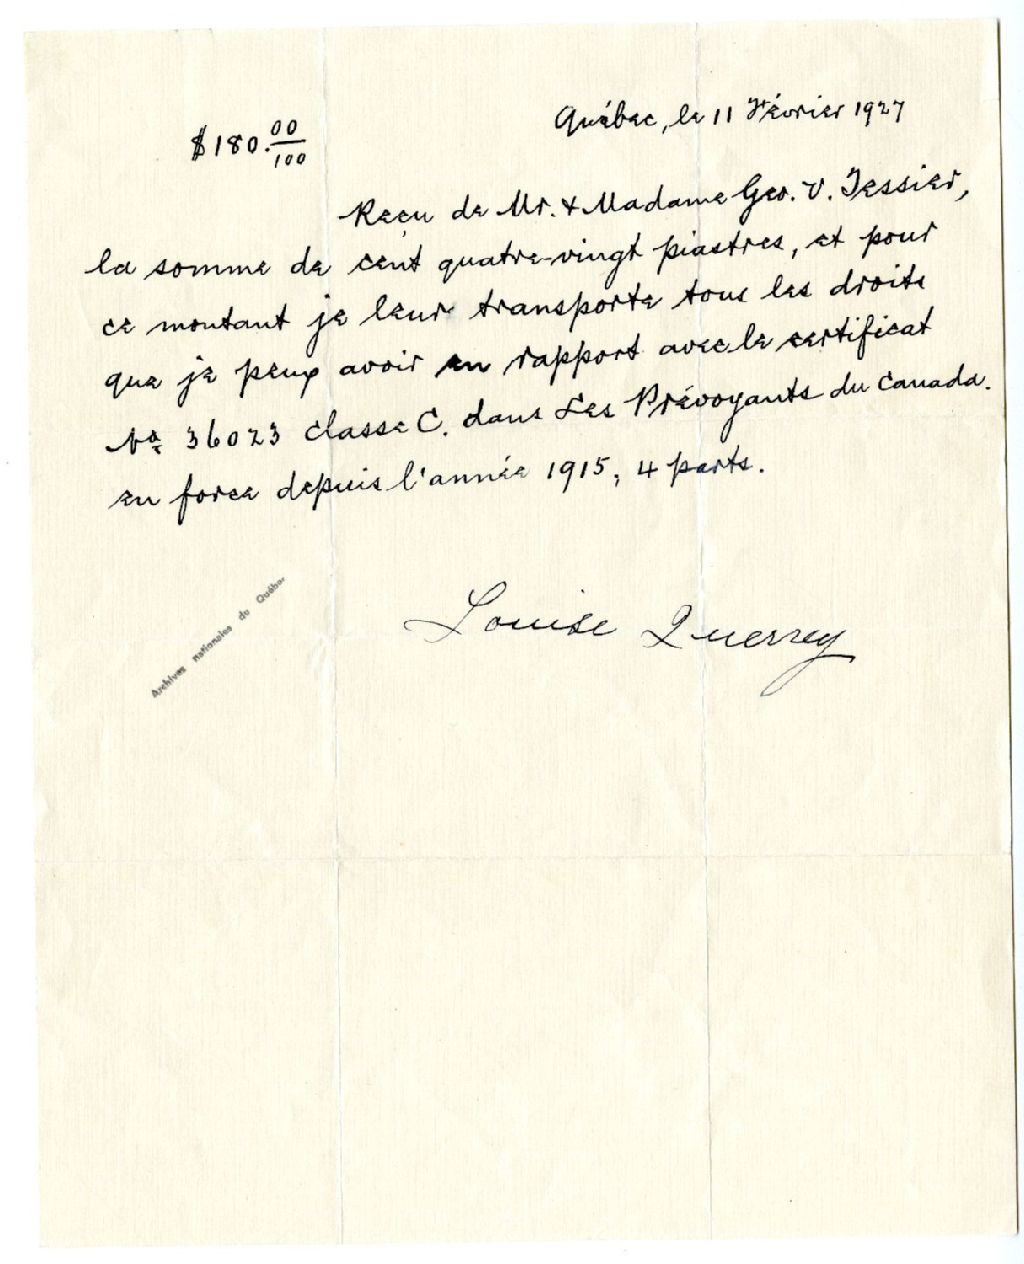 Québec, le 11 Février 1927
$180.00/100
Reçu de Mr. & Madame Geo. V. Tessier,
la somme de cent quatre-vingt piastres, et pour
ce montant je leur transporte tous les droits
que je peux avoir en rapport avec le certificat
No 36023 classe C. dans Les Prévoyants du Canada.
en force depuis l'année 1915, 4 parts.
Louise Querrey
Archives nationales du Québec